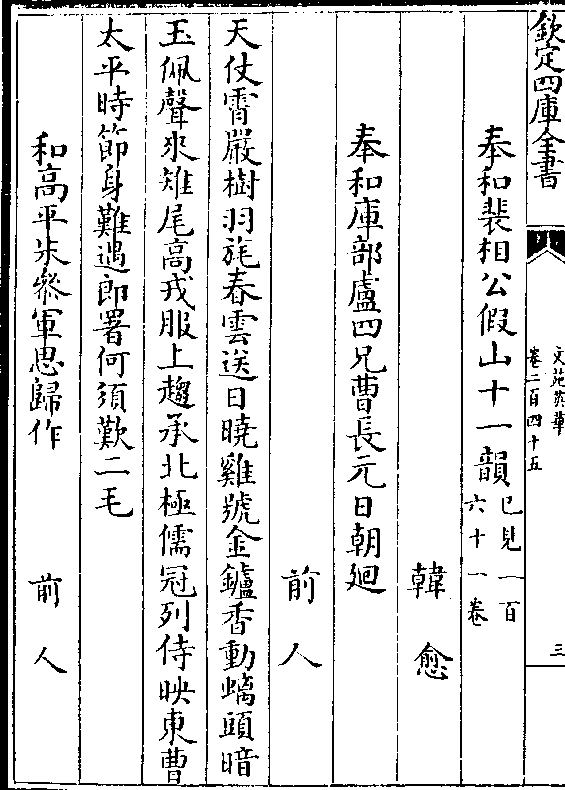 欽定四庫全書
文苑英華
卷二百四十五
三
奉和裴相公假山十一韻已見一百
六十一卷
韓愈
奉和庫部盧四兄曹長元日朝廻
前人
天仗霄嚴樹羽旄春雲送日曉雞號金鑪香動螭頭暗
玉佩聲來雉尾高戎服上趨承北極儒冠列侍映東曹
太平時節身難遇郎署何須歎二毛
和高平朱參軍思歸作
前人